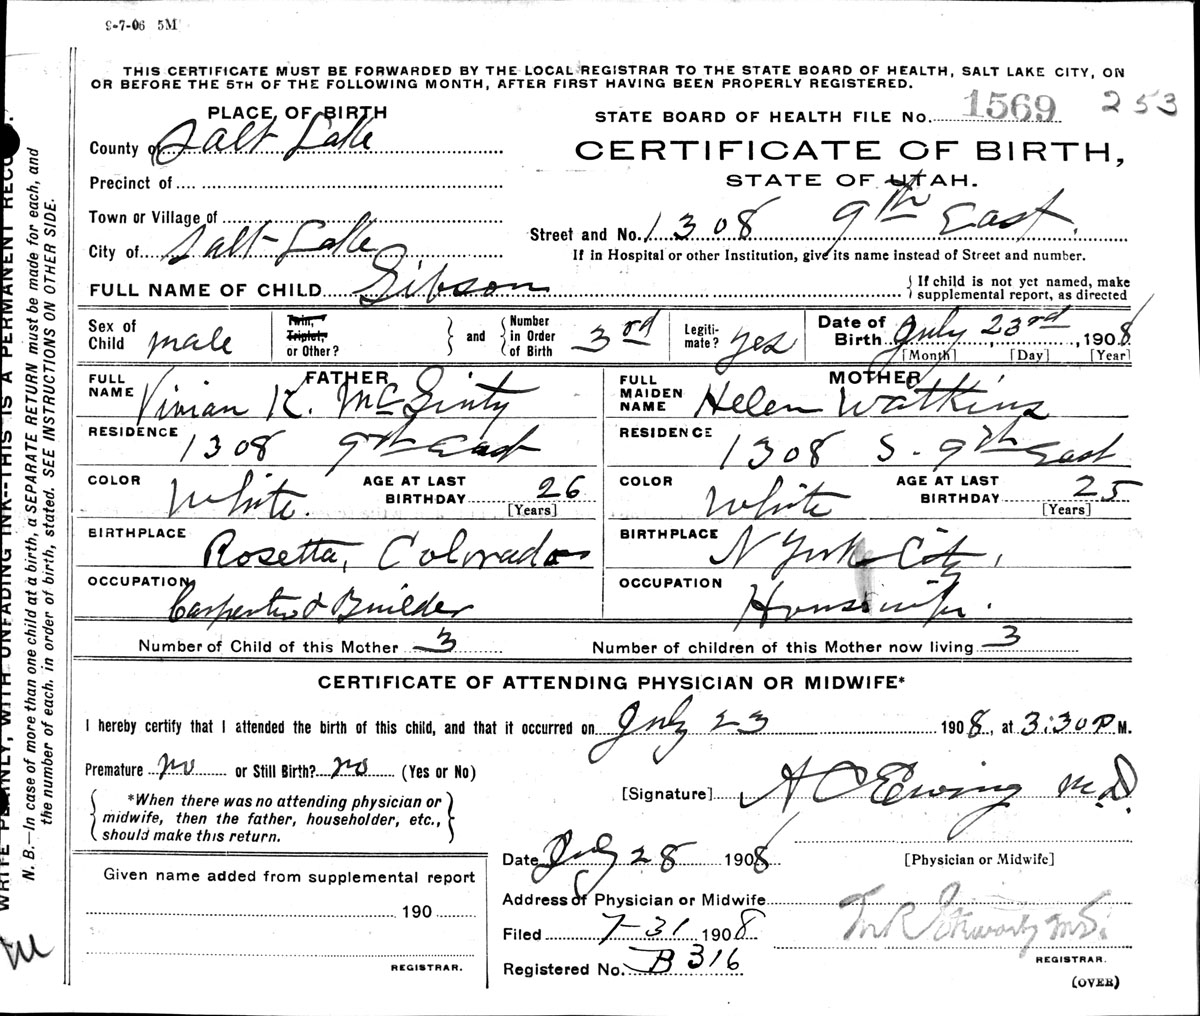 9-7-06 5M
THIS CERTIFICATE MUST BE FORWARDED BY THE LOCAL REGISTRAR TO THE STATE BOARD OF HEALTH, SALT LAKE CITY, ON
OR BEFORE THE 5TH OF THE FOLLOWING MONTH, AFTER FIRST HAVING BEEN PROPERLY REGISTERED.
PLACE OF BIRTH
STATE BOARD OF HEALTH FILE No. 1569 253
County of Salt Lake
CERTIFICATE OF BIRTH,
Precinct of
STATE OF UTAH.
Town or Village of
Street and No. 1308 9th East.
City of Salt Lake
If in Hospital or other Institution, give its name instead of Street and number.
FULL NAME OF CHILD Gibson
{ If child is not yet named, make
supplemental report, as directed
Sex of Child male
Twin, Triplet, or Other? } and { Number in Order of Birth 3rd
Legiti-mate? yes
Date of Birth July 23rd, 1908
[Month] [Day] [Year]
FATHER
FULL NAME Vivian K. McGinty
RESIDENCE 1308 9th East
COLOR White. AGE AT LAST BIRTHDAY 26
[Years]
BIRTHPLACE Rosetta, Colorado
OCCUPATION Carpenter & Builder
MOTHER
FULL MAIDEN NAME Helen Watkins
RESIDENCE 1308 S. 9th East
COLOR White AGE AT LAST BIRTHDAY 25
[Years]
BIRTHPLACE N York City,
OCCUPATION Housewife.
Number of Child of this Mother 3 Number of children of this Mother now living 3
CERTIFICATE OF ATTENDING PHYSICIAN OR MIDWIFE*
I hereby certify that I attended the birth of this child, and that it occurred on July 23 1908, at 3:30 P M.
Premature no or Still Birth? no (Yes or No)
{ *When there was no attending physician or
midwife, then the father, householder, etc.,
should make this return. }
[Signature] A C Ewing M.D.
Date July 28 1908
[Physician or Midwife]
Given name added from supplemental report
190
REGISTRAR.
Address of Physician or Midwife
Filed 7-31 1908
REGISTRAR.
Registered No. B 316
(OVER)
N. B.—In case of more than one child at a birth, a SEPARATE RETURN must be made for each, and
the number of each, in order of birth, stated. SEE INSTRUCTIONS ON OTHER SIDE.
WRITE PLAINLY, WITH UNFADING INK--THIS IS A PERMANENT RECO